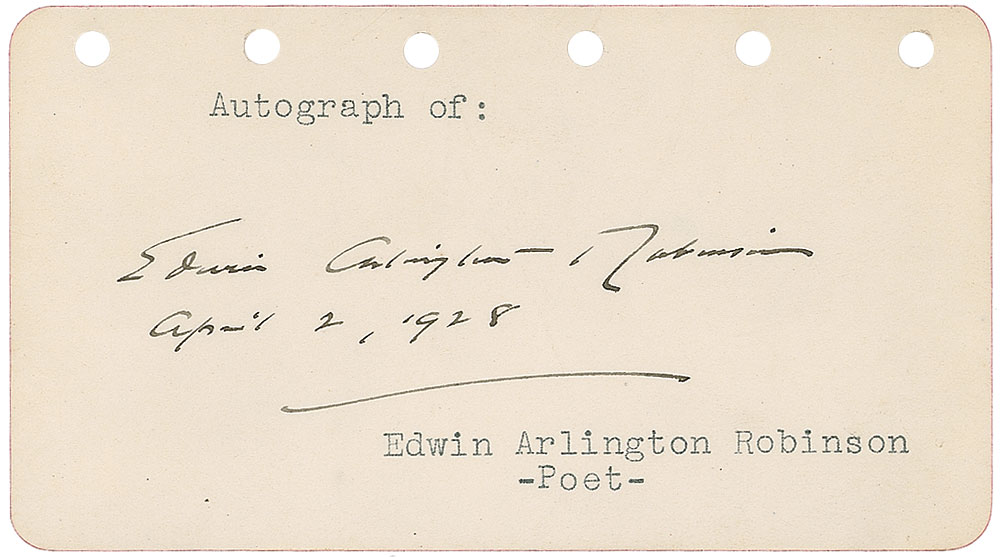 Autograph of:
Edwin Arlington Robinson
April 2, 1928
Edwin Arlington Robinson
-Poet-